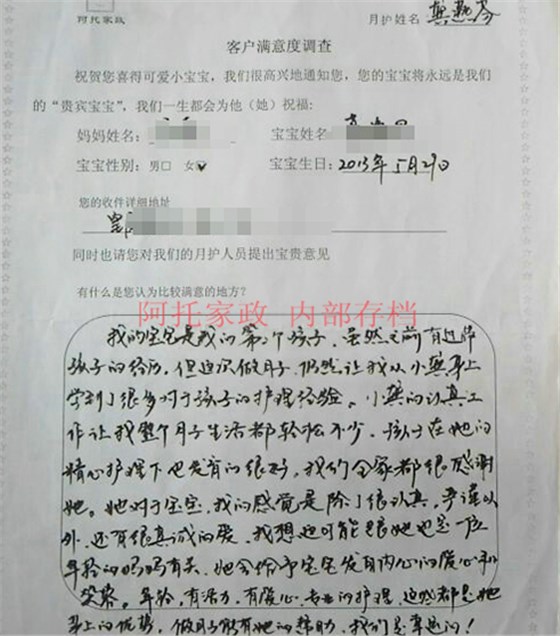 阿托家政
月护姓名 龚
客户满意度调查
祝贺您喜得可爱小宝宝，我们很高兴地通知您，您的宝宝将永远是我们
的“贵宾宝宝”，我们一生都会为他（她）祝福：
妈妈姓名：
宝宝姓名
宝宝性别：男□ 女☑
宝宝生日：2013年5月29日
您的收件详细地址
同时也请您对我们的月护人员提出宝贵意见
有什么是您认为比较满意的地方？
阿托家政 内部存档
我的宝宝是我的第二个孩子，虽然之前有过带
孩子的经历，但这次做月子，仍然让我从小龚身上
学到了很多对于孩子的护理经验。小龚的认真工
作让我整个月子生活都轻松不少，孩子在她的
精心护理下也发育的很好，我们全家都很感谢
她。她对于宝宝，我的感觉是除了很认真，严谨以
外，还有很真诚的爱，我想也可能跟她也是一位
年轻的妈妈有关，她会给予宝宝发自内心的爱心和
笑容。年轻，有活力，有爱心，专业的护理，这些都是她
身上的优势，做月子能有她的帮助，我们是幸运的！